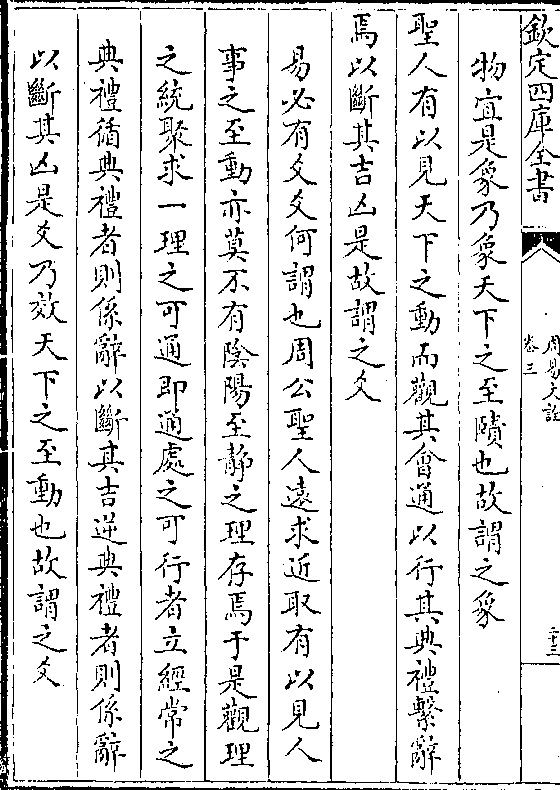 欽定四庫全書
周易大詮
卷三
二十三
物宜是象乃象天下之至賾也故謂之象
聖人有以見天下之動而觀其會通以行其典禮繫辭
焉以斷其吉凶是故謂之爻
易必有爻爻何謂也周公聖人遠求近取有以見人
事之至動亦莫不有陰陽至靜之理存焉于是觀理
之統聚求一理之可通即通處之可行者立經常之
典禮循典禮者則係辭以斷其吉逆典禮者則係辭
以斷其凶是爻乃效天下之至動也故謂之爻